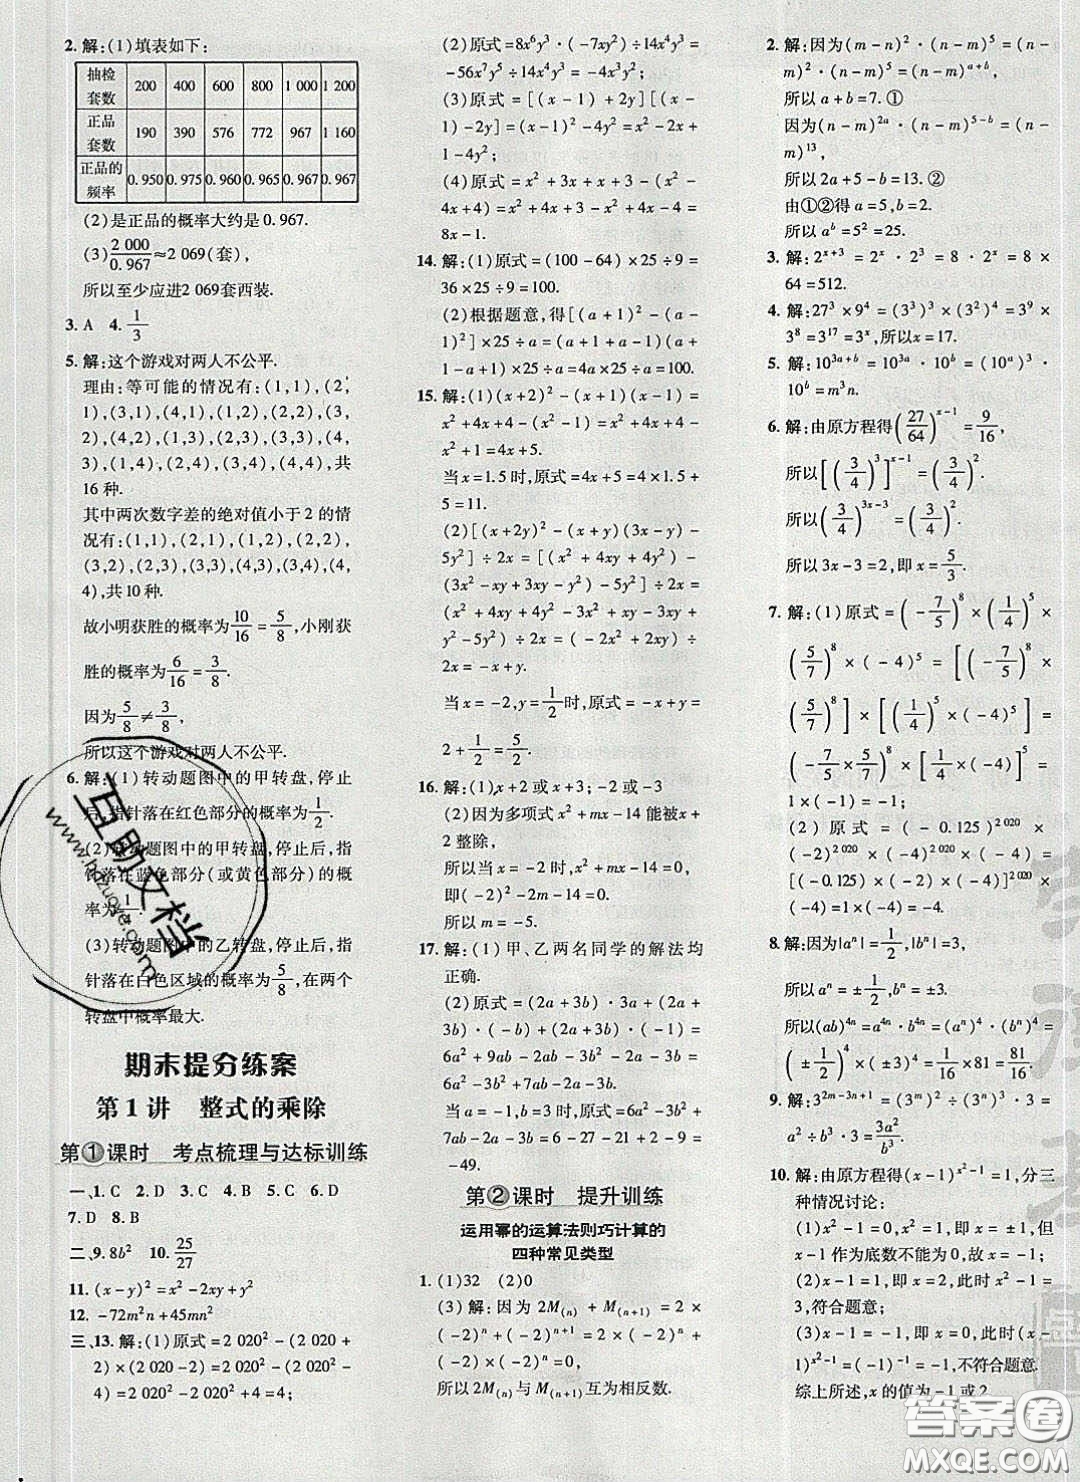 2. 解:(1)填表如下:
抽检套数 200 400 600 800 1 000 1 200
正品套数 190 390 576 772 967 1 160
正品的频率 0.950 0.975 0.960 0.965 0.967 0.967
(2)是正品的概率大约是0.967.
(3)2 000/0.967≈2 069(套),
所以至少应进2 069套西装.
3. A 4. 1/3
5. 解:这个游戏对两人不公平.
理由:等可能的情况有:(1,1),(2,
1),(3,1),(4,1),(1,2),(2,2),(3,
2),(4,2),(1,3),(2,3),(3,3),(4,
3),(1,4),(2,4),(3,4),(4,4),共
16种.
其中两次数字差的绝对值小于2的情
况有:(1,1),(2,1),(1,2),(2,2),
(3,2),(2,3),(3,3),(4,3),(3,4),(4,
4),共10种.
故小明获胜的概率为10/16=5/8,小刚获
胜的概率为6/16=3/8.
因为5/8≠3/8,
所以这个游戏对两人不公平.
6. 解:(1)转动题图中的甲转盘,停止
后,指针落在红色部分的概率为1/2.
(2)转动题图中的甲转盘,停止后,指
针落在蓝色部分(或黄色部分)的概
率为1/4.
(3)转动题图中的乙转盘,停止后,指
针落在白色区域的概率为5/8,在两个
转盘中概率最大.
期末提分练案
第1讲 整式的乘除
第①课时 考点梳理与达标训练
一、1. C 2. D 3. C 4. B 5. C 6. D
7. D 8. B
二、9. 8b² 10. 25/27
11. (x-y)²=x²-2xy+y²
12. -72m²n+45mn²
三、13. 解:(1)原式=2 020²-(2 020+
2)×(2 020-2)=2 020²-(2 020²-
2²)=2 020²-2 020²+4=4;
(2)原式=8x⁶y³·(-7xy²)÷14x⁴y³=
-56x⁷y⁵÷14x⁴y³=-4x³y²;
(3)原式=[(x-1)+2y][(x-
1)-2y]=(x-1)²-(2y)²=x²-2x+
1-4y²;
(4)原式=x²+3x+(x²-3x-(x²-
4x+4)=x²+3x+x²-3x-x²+4x-4=x²+
8x-1.
14. 解:(1)原式=(100-64)×25÷9=
36×25÷9=100.
(2)根据题意,得[(a+1)²-(a-
1)²]×25÷a=(a+1-a+1)(a+
1+a-1)×25÷a=4a×25÷a=100.
15. 解:(1)(x+2)²-(x+1)(x-1)=
x²+4x+4-(x²-1)=x²+4x+4-
x²+1=4x+5.
当x=1.5时,原式=4x+5=4×1.5+
5=11.
(2)[(x+2y)²-(3x-y)(x+y)-
5y²]÷2x=[(x²+4xy+4y²)-
(3x²-xy+3xy-y²)-5y²]÷2x=
(x²+4xy+4y²-3x²+xy-3xy+
y²-5y²)÷2x=(-2x²+2xy)÷
2x=-x+y.
当x=-2,y=1/2时,原式=-x+y=
2+1/2=5/2.
16. 解:(1),x+2或x+3;-2或-3
(2)因为多项式x²+mx-14能被x+
2整除,
所以当x=-2时,x²+mx-14=0,
即(-2)²-2m-14=0.
所以m=-5.
17. 解:(1)甲、乙两名同学的解法均
正确.
(2)原式=(2a+3b-2a+3b)·
(2a+3b)·(-b)=6b·(2a+3b)·
6a²+9ab-2ab-3b²-6ab-9b²-
6b²=6a²+ab-18b².
当a=-1,b=2时,原式=6a²+
ab-18b²=6×(-1)²+(-1)×
2-18×2²=6-2-72=-68.
第②课时 提升训练
运用幂的运算法则巧计算的
四种常见类型
1. (1)32 (2)0
(3)解:因为2M₍ₙ₎+M₍ₙ₊₁₎=2×
(-2)ⁿ+(-2)ⁿ⁺¹=-(-2)×
(-2)ⁿ+(-2)ⁿ⁺¹=0,
所以2M₍ₙ₎与M₍ₙ₊₁₎互为相反数.
2. 解:因为(m-n)²·(n-m)⁵=(n-
m)²·(n-m)⁵=(n-m)ᵃ⁺ᵇ,
所以a+b=7. ①
因为(n-m)²ᵃ·(n-m)⁵⁻ᵇ=(n-
m)¹³,
所以2a+5-b=13. ②
由①②得a=5,b=2,
所以aᵇ=5²=25.
3. 解:2ˣ⁺³=2ˣ·2³=8·2ˣ=8×
64=512.
4. 解:27³×9⁴=(3³)³×(3²)⁴=3⁹×
3⁸=3¹⁷=3ˣ,所以x=17.
5. 解:10³ᵃ⁺ᵇ=10³ᵃ·10ᵇ=(10ᵃ)³
·10ᵇ=m³n.
6. 解:由原方程得(27/64)ˣ⁻¹=9/16,
所以[(3/4)³]ˣ⁻¹=(3/4)².
所以(3/4)³ˣ⁻³=(3/4)².
所以3x-3=2,即x=5/3.
7. 解:(1)原式=(-7/5)⁸×(1/4)⁵×
(5/7)⁸×(-4)⁵=[(-7/5)⁸×
(5/7)⁸]×[(1/4)⁵×(-4)⁵]=
(-7/5×5/7)⁸×[1/4×(-4)]⁵=
1×(-1)=-1;
(2)原式=(-0.125)²⁰²⁰×
(-2)²⁰²⁰×(-4)²⁰²⁰×(-4)=
[(-0.125)×(-2)×(-4)]²⁰²⁰×
(-4)=1×(-4)=-4.
8. 解:因为|aⁿ|=1/2,|bⁿ|=3,
所以aⁿ=±1/2,bⁿ=±3.
所以(ab)⁴ⁿ=a⁴ⁿ·b⁴ⁿ=(aⁿ)⁴·(bⁿ)⁴=
(±1/2)⁴×(±3)⁴=1/16×81=81/16.
9. 解:3²ᵐ⁻³ⁿ⁺¹=(3ᵐ)²÷(3ⁿ)³×3=3a²/b³.
10. 解:由原方程得(x-1)^(x²-1)=1,分三
种情况讨论:
(1)x²-1=0,即x=±1,当x=1时,
x-1作为底数不能为0,所以x=-1;
(2)x-1=1,即x=2,此时x²-1=
3,符合题意;
(3)x-1=-1,即x=0,此时(x-
1)^(x²-1)=(-1)⁻¹=-1,不符合题意.
综上所述,x的值为-1或2.
互助文档
www.hdzuoye.com
答案圈
MXQE.COM